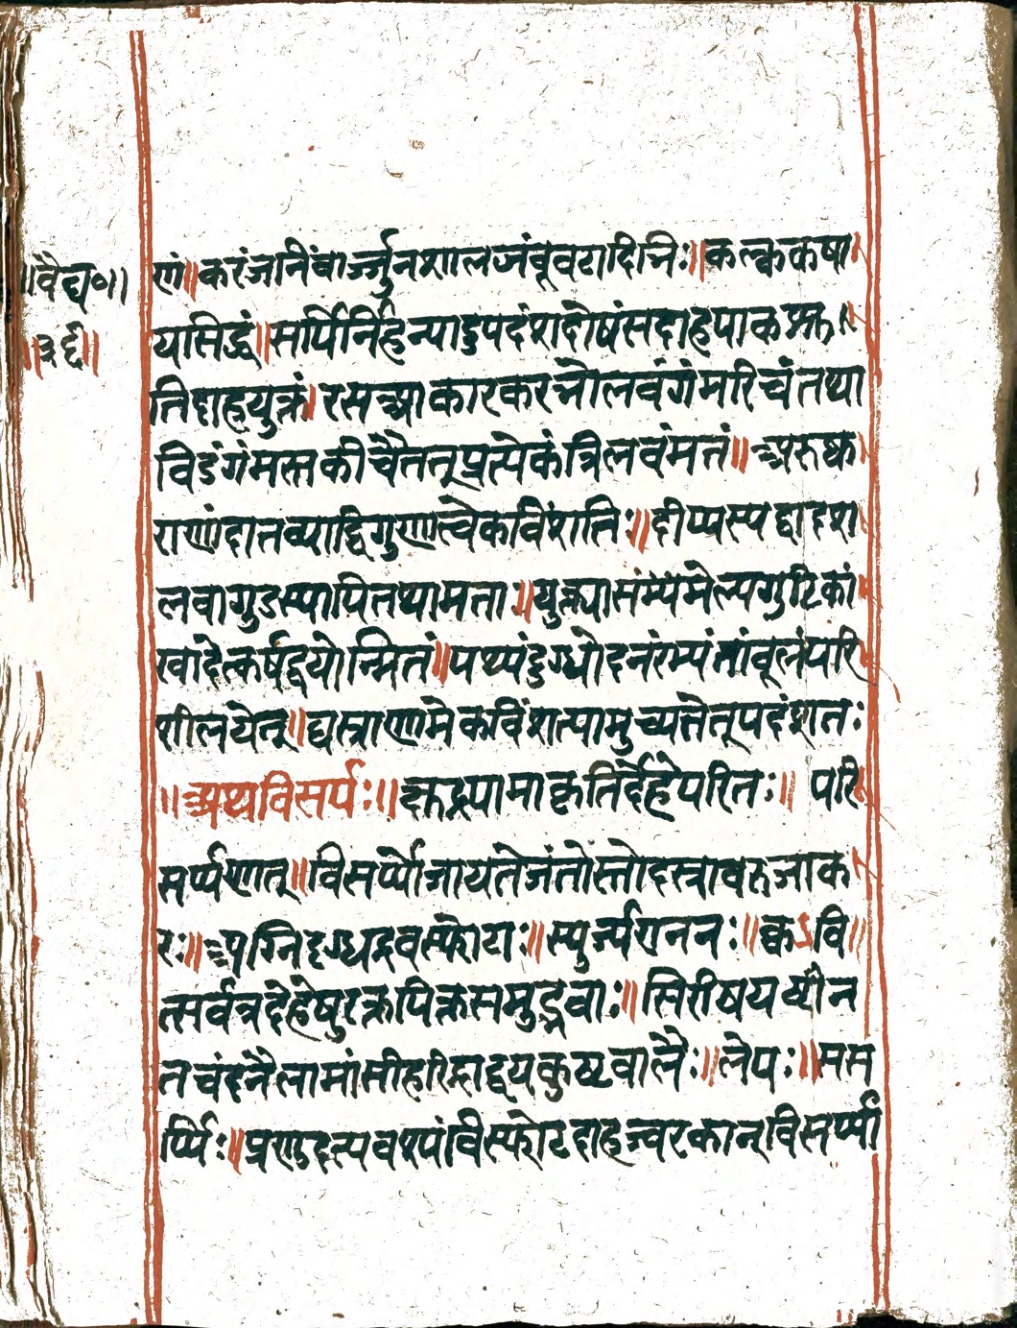 ॥वैद्य०॥
॥३६॥
णं॥करंजनिंबार्ज्जुनशालजंबूवटादिभिः॥कल्ककषा
यसिद्धं॥सर्पिर्निहन्यादुपदंशदोषंसदाहपाकस्रु
तिदाहयुक्तं॥रसश्चाकारकरभोलवंगंमरिचंतथा
विडंगंमस्तकीचैतत्प्रत्येकंत्रिलवंमतं॥अरुष्क
राणांदातव्याद्विगुणात्वेकविंशतिः॥दीप्यस्यद्वादश
लवागुडस्यापितथामता॥युक्त्यासंम्यमेल्यगुटिकां
खादेत्कर्षद्वयोन्मितं॥पथ्यंदुग्धोदनंरम्यंतांबूलंपरि
शीलयेत्॥घस्त्राणामेकविंशत्यामुच्यत्तेतूपदंशतः
॥अथविसर्पः॥क्षुद्रपामाकृतिर्देहेपरितः॥परि
सर्प्पणात्॥विसर्प्पोजायतेजंतोस्तोदस्त्रावरुजाक
रः॥अग्निदग्धइवस्फोटाः॥स्युर्ज्य॥क्कऽवि॥
त्सर्वत्रदेहेषुरक्तपित्तसमुद्भवाः॥सिरीषयष्टीन
तचंदनैलामांसीहरिद्राद्वयकुष्टवालैः॥लेपः॥सस
र्प्पिः॥प्रणुदत्यवश्यंविस्फोटदाहज्वरकान्विसर्प्पा